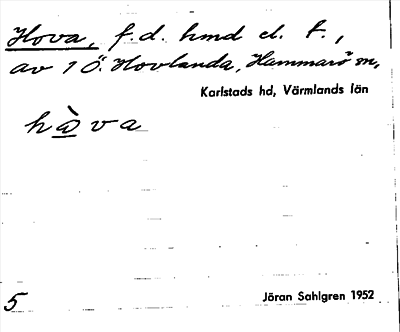 Hova, f.d. hmd el. t.,
av 1 Ö. Hovlanda, Hammarö sn,
Karlstads hd, Värmlands län
hò̲va
5
Jöran Sahlgren 1952